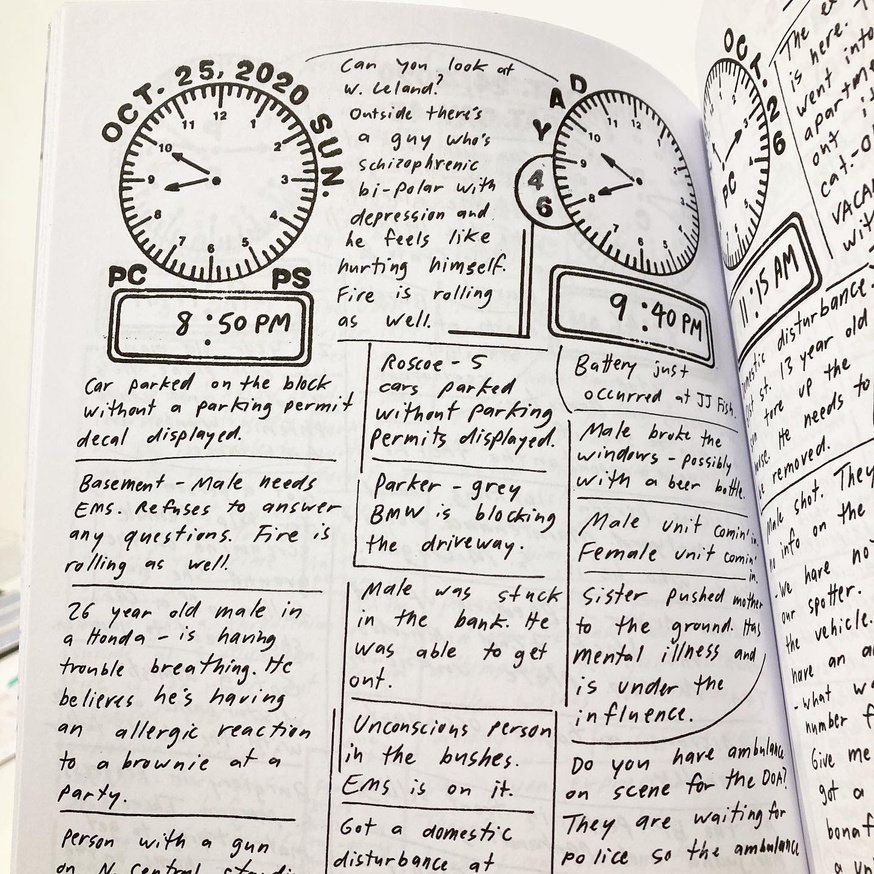 OCT. 25, 2020 SUN.
12
1
2
3
4
5
6
7
8
9
10
11
PC
PS
8:50 PM
Can you look at
W. Leland?
Outside there's
a guy who's
schizophrenic
bi-polar with
depression and
he feels like
hurting himself.
Fire is rolling
as well.
DAY
46
9:40 PM
Car parked on the block
without a parking permit
decal displayed.
Basement - Male needs
EMS. Refuses to answer
any questions. Fire is
rolling as well.
26 year old male in
a Honda - is having
trouble breathing. He
believes he's having
an allergic reaction
to a brownie at a
party.
Person with a gun
on N. Central
Roscoe - 5
cars parked
without parking
permits displayed.
Parker - grey
BMW is blocking
the driveway.
Male was stuck
in the bank. He
was able to get
out.
Unconscious person
in the bushes.
EMS is on it.
Got a domestic
disturbance at
Battery just
occurred at JJ Fish.
Male broke the
windows - possibly
with a beer bottle.
Male unit comin' in.
Female unit comin'
in.
Sister pushed mother
to the ground. Has
mental illness and
is under the
influence.
Do you have ambulance
on scene for the DOA?
They are waiting for
police so the ambulance
OCT. 26
PC
11:15 AM
The
is here.
went into
apartme
out is
cat-o
VACA
wit
disturbance.
st. 13 year old
tore up the
He needs to
removed.
Male shot. They
info on the
-We have no
our spotter.
the vehicle.
have an a
-what w
number f
Give me
got a
bonaf
a un